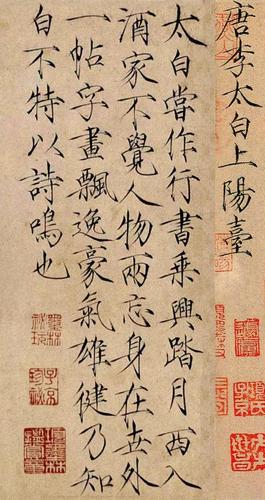 唐李太白上陽臺
太白嘗作行書乘興踏月西入
酒家不覺人物兩忘身在世外
一帖字畫飄逸豪氣雄健乃知
白不特以詩鳴也